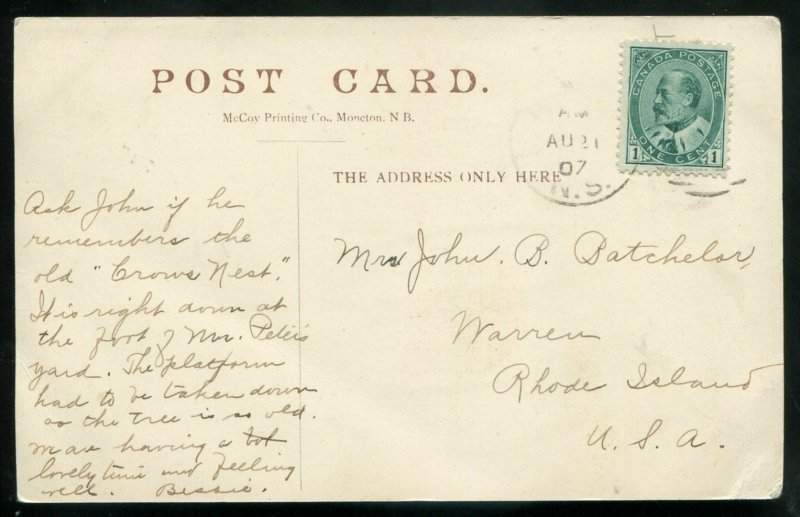 POST CARD.
McCoy Printing Co., Moncton. N.B.
THE ADDRESS ONLY HERE
CANADA POSTAGE
1 ONE CENT 1
AM
AU 21
07
N.S.
Ask John if he
remembers the
old "Crows Nest."
It is right down at
the foot of Mr. Peter's
yard. The platform
had to be taken down
as the tree is so old.
We are having a lot
lovely time and feeling
well. Bessie.
Mrs John. B. Batchelor,
Warren
Rhode Island
U. S. A.